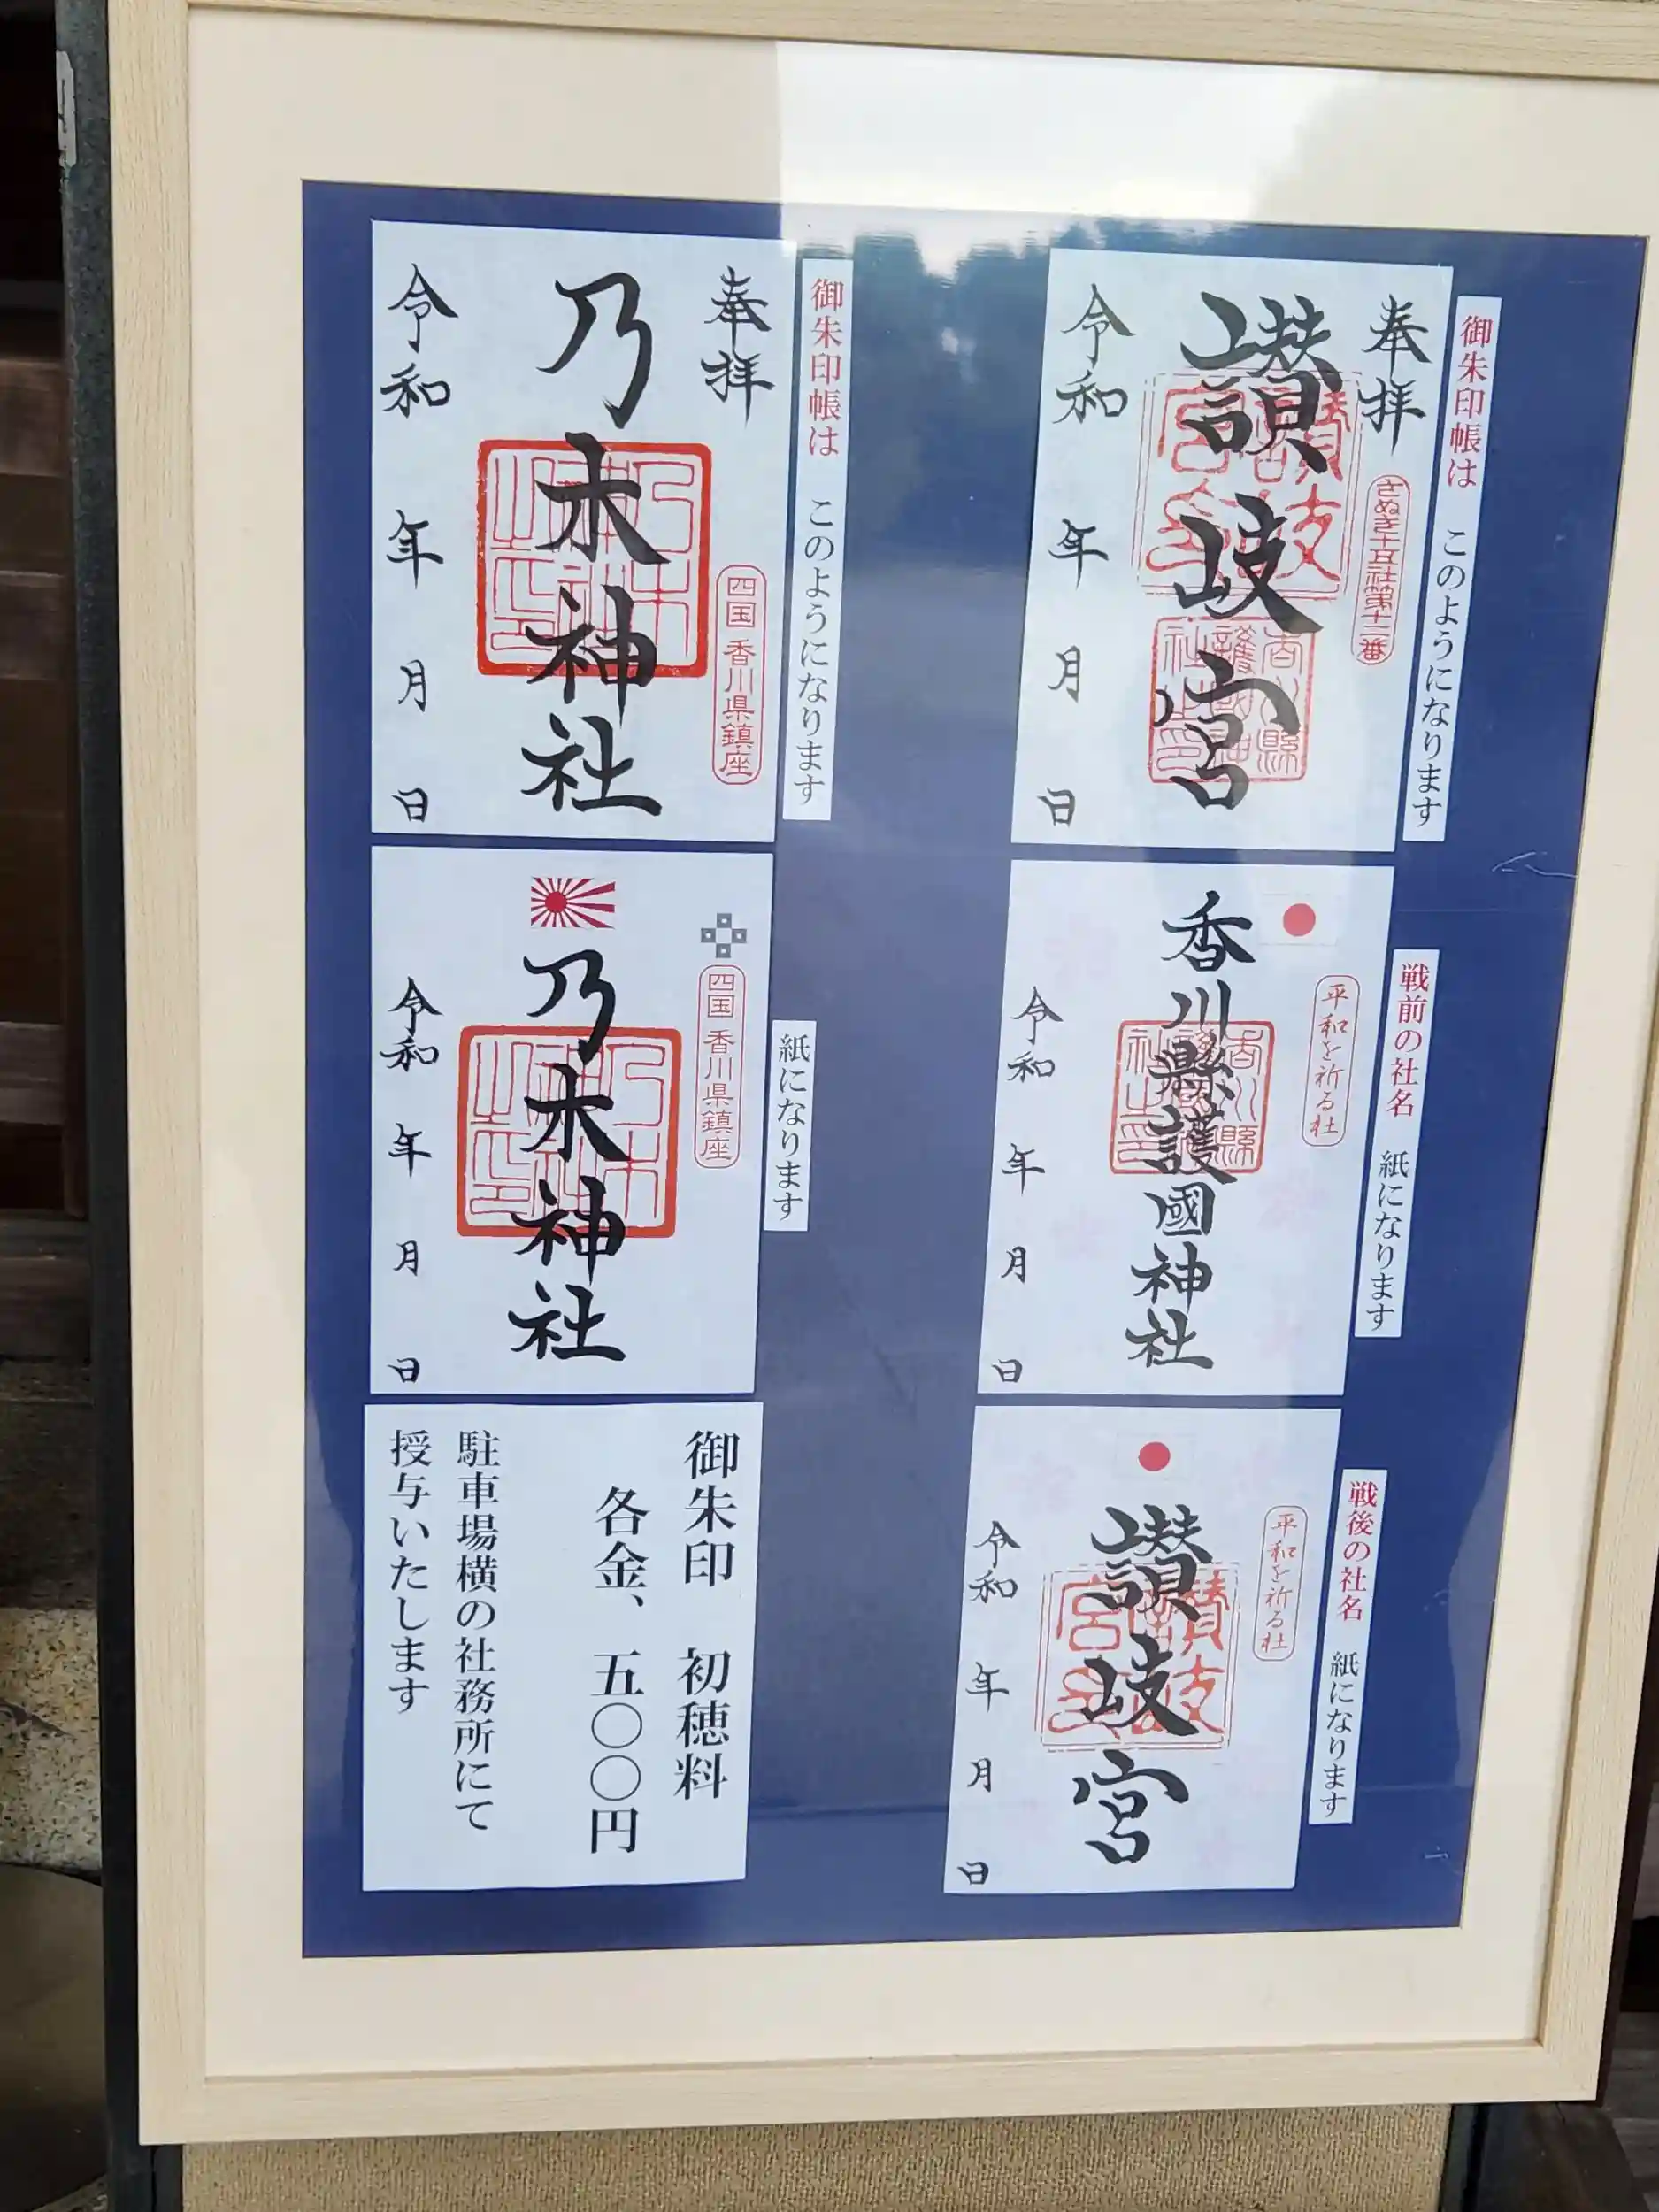 御朱印帳は このようになります
奉拝
さぬき十五社第十二番
讃岐宮
令和 年 月 日
戦前の社名 紙になります
平和を祈る社
香川縣護國神社
令和 年 月 日
戦後の社名 紙になります
平和を祈る社
讃岐宮
令和 年 月 日
御朱印帳は このようになります
奉拝
四国 香川県鎮座
乃木神社
令和 年 月 日
紙になります
四国 香川県鎮座
乃木神社
令和 年 月 日
御朱印 初穂料
各金、五〇〇円
駐車場横の社務所にて
授与いたします